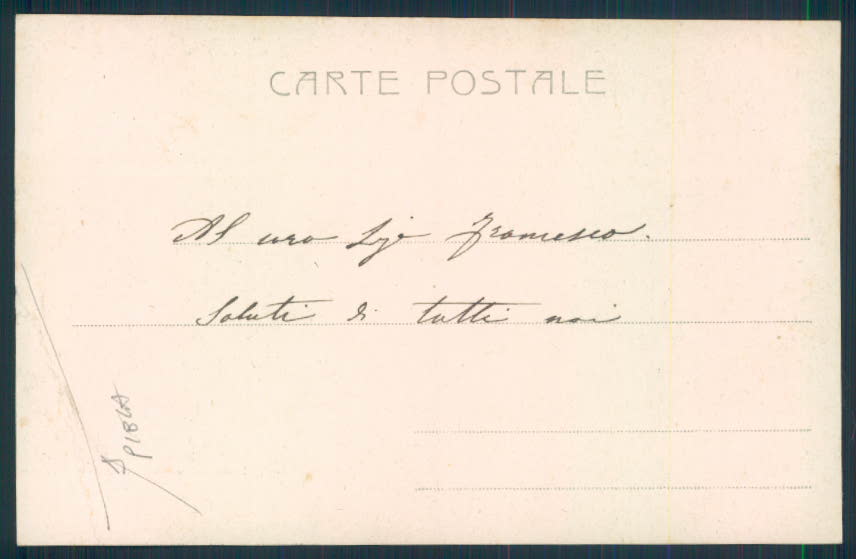 CARTE POSTALE
Al caro Francesco.
Saluti di tutti noi